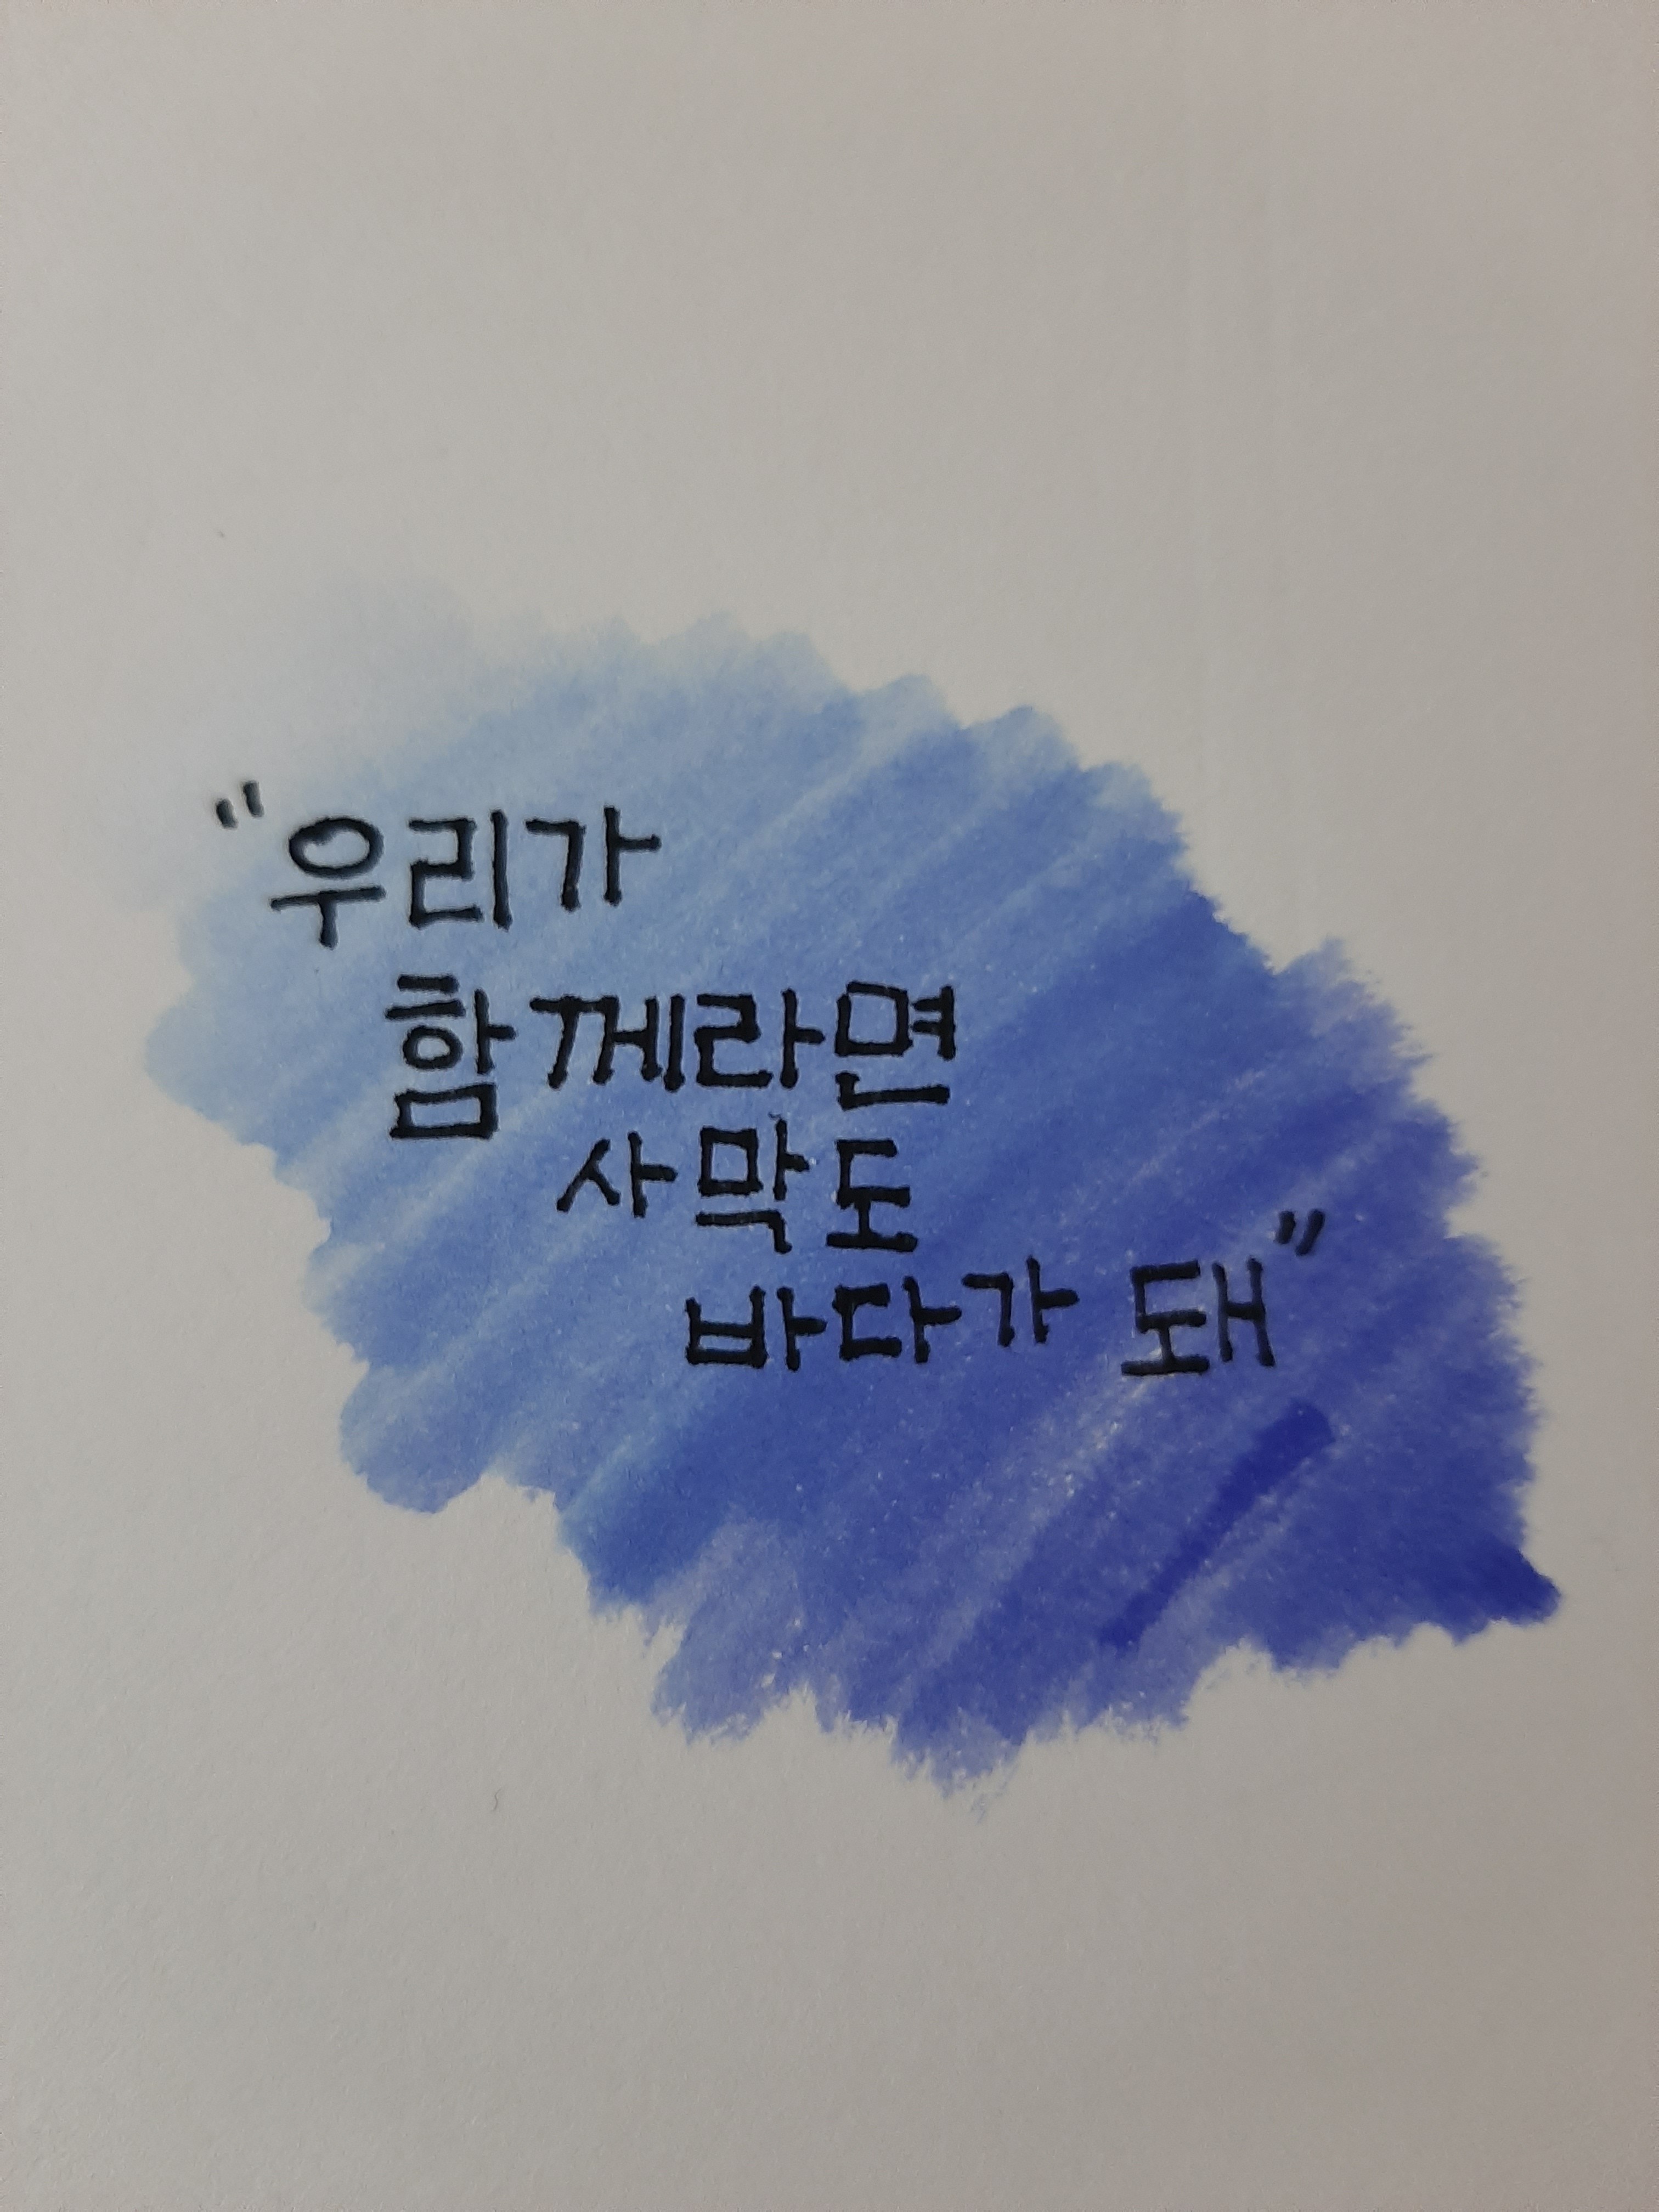 "우리가
함께라면
사막도
바다가 돼"